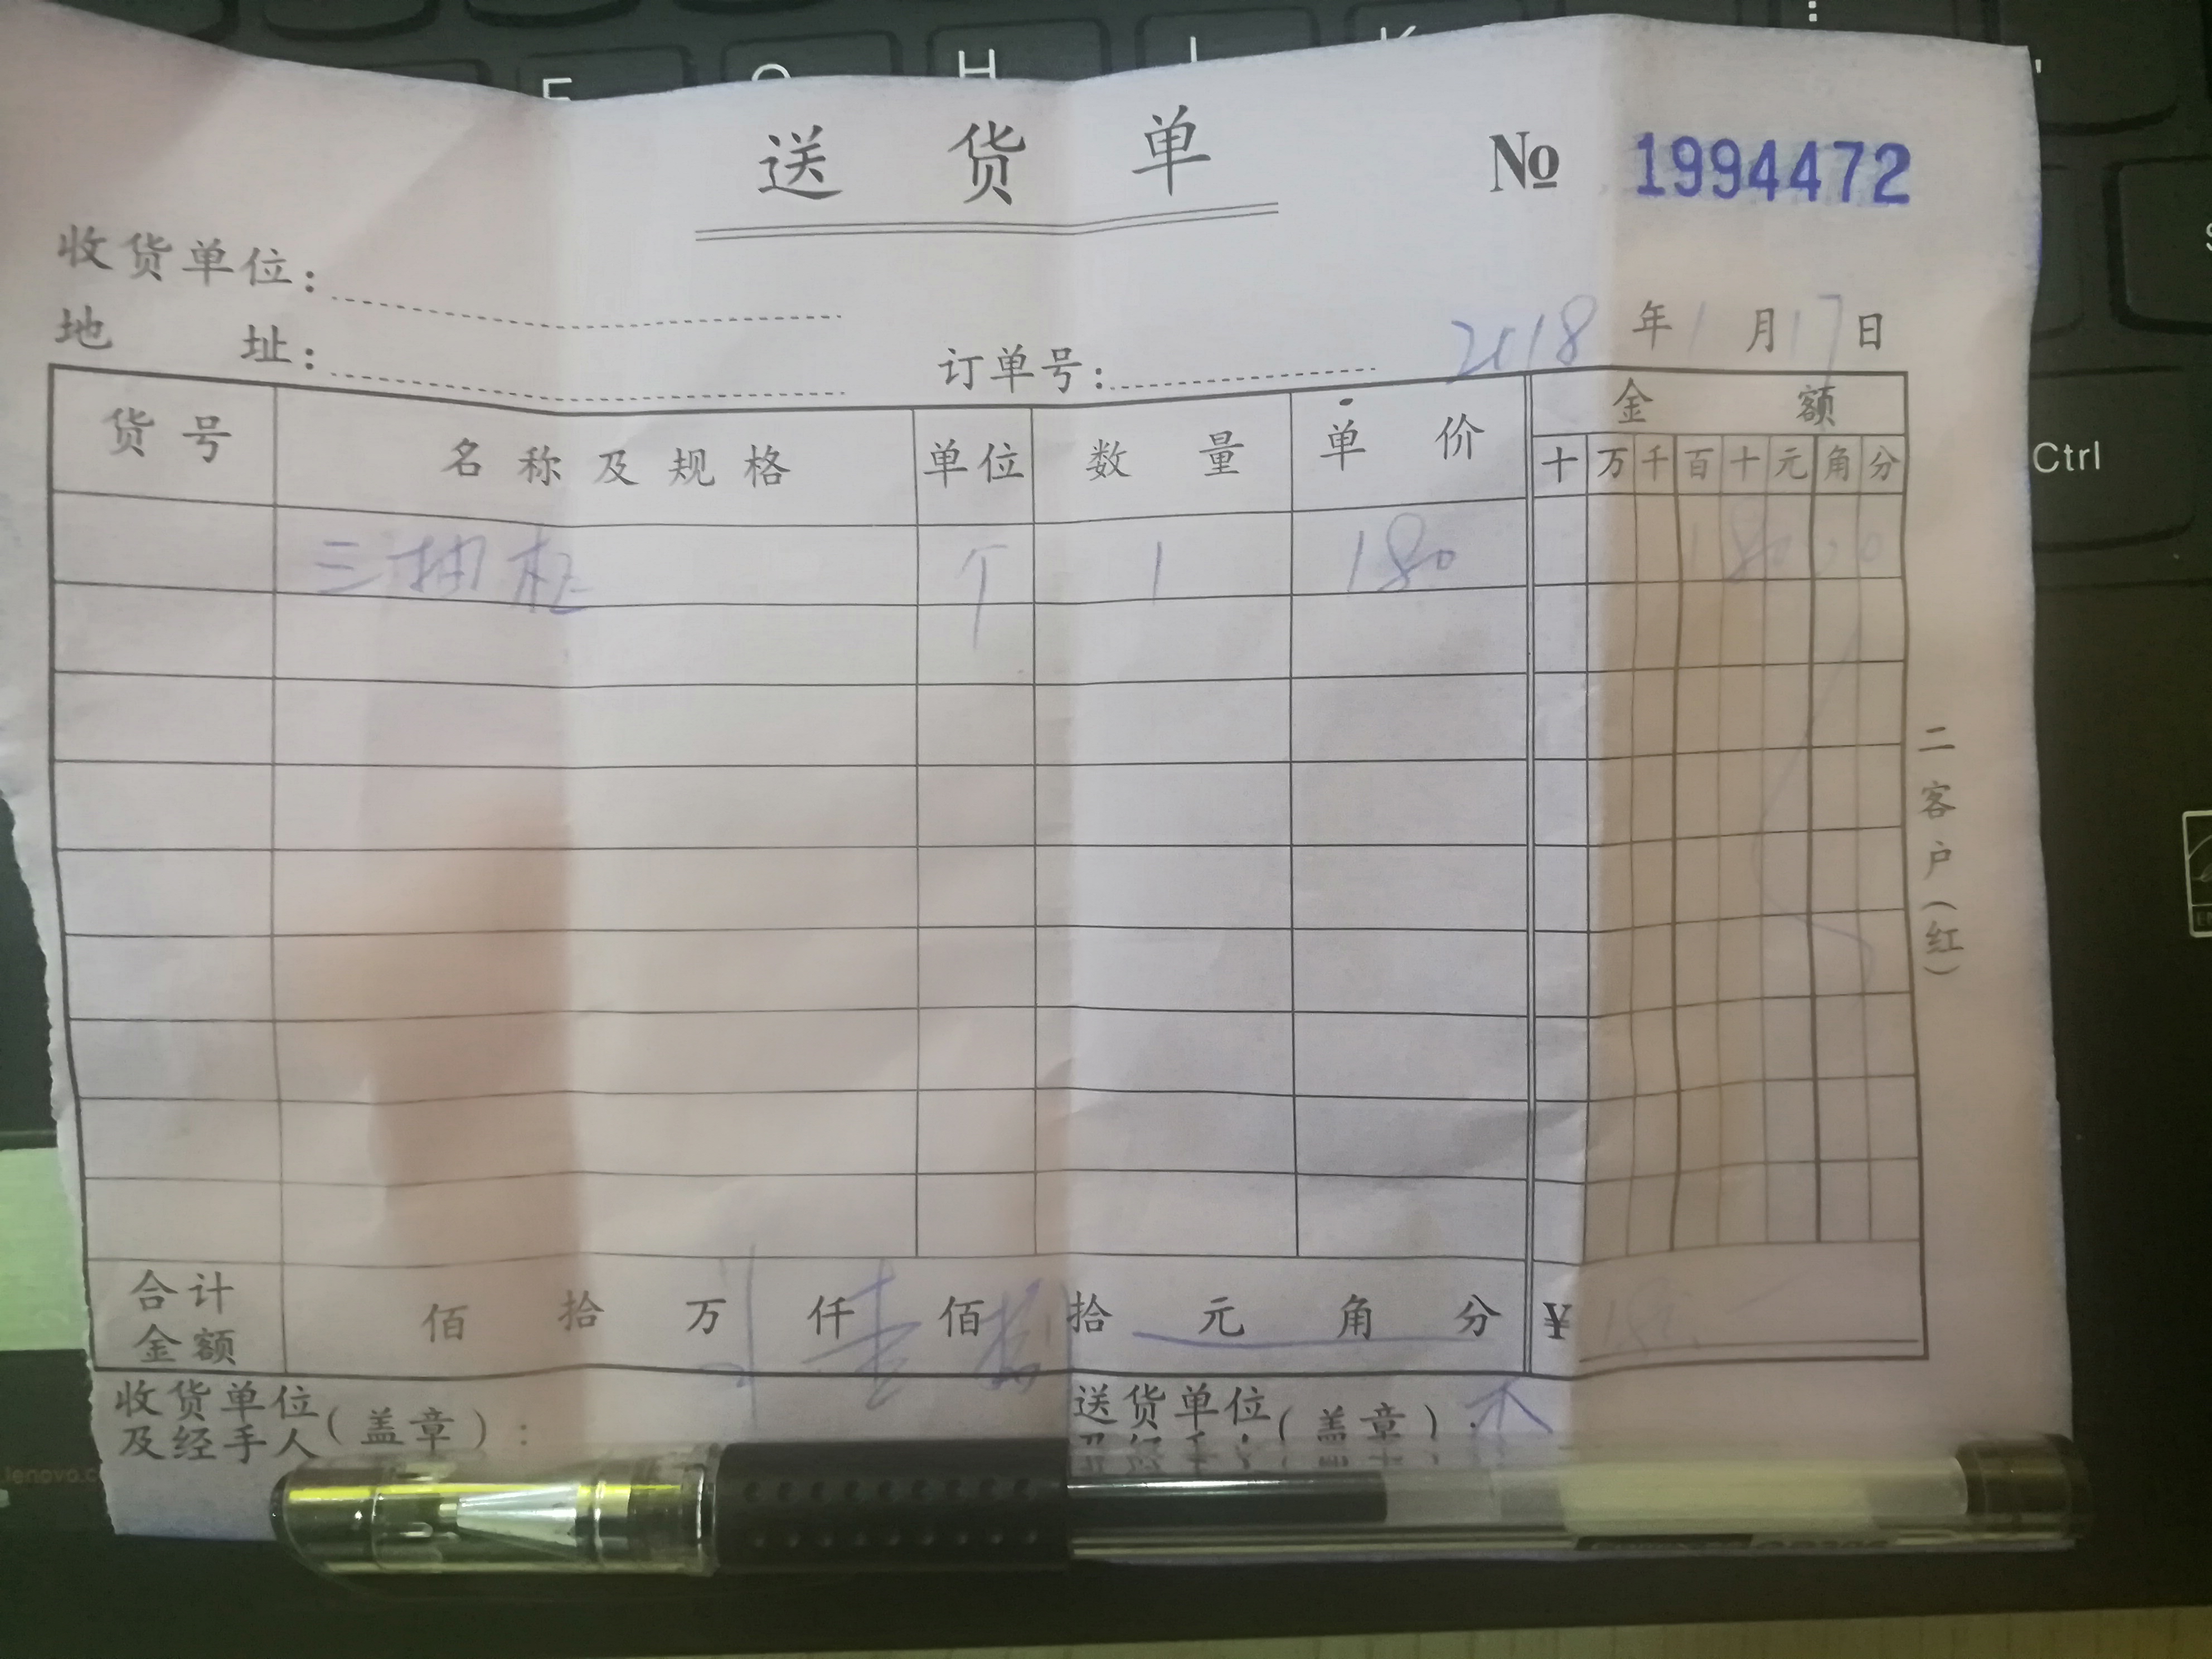 H
送货单 № 1994472
收货单位:
地址: 订单号: 2018年1月17日
货号 名称及规格 单位 数量 单价 金额
十万千百十元角分
三抽柜 个 1 180 180.00
合计金额 佰 拾 万 仟 壹佰 捌拾 元 角 分 ¥ 180
收货单位及经手人(盖章):
送货单位(盖章):
二客户(红)
Ctrl